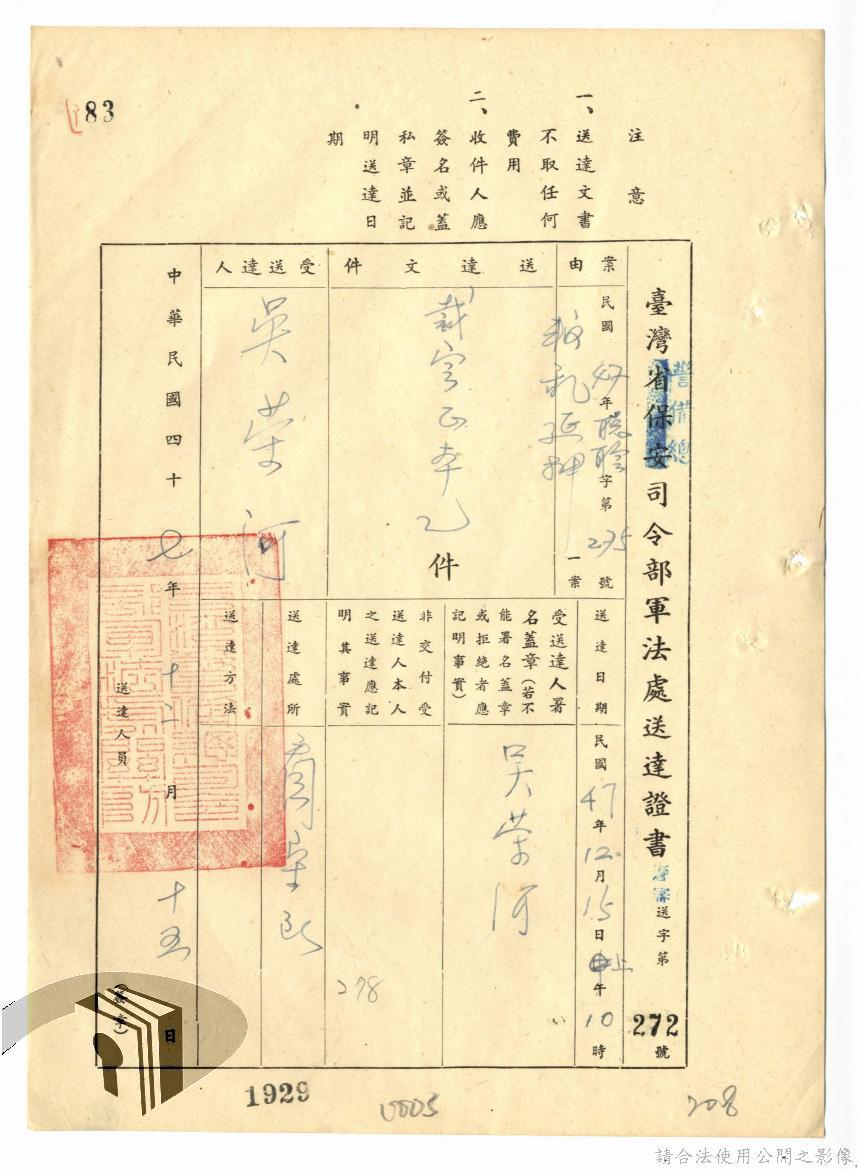 83
注意
一、送達文書
不取任何
費用
二、收件人應
簽名或蓋
私章並記
明送達日
期
臺灣省保安司令部軍法處送達證書
警備總
送字第272號
案由
民國47年 字第275號
叛乱延押
一案
送達文件
裁定正本乙件
受送達人
吳荣河
送達日期
民國47年12月15日上午10時
受送達人署
名蓋章(若不
能署名蓋章
或拒絕者應
記明事實)
吴荣河
非交付受
送達人本人
之送達應記
明其事實
278
送達處所
送達方法
中華民國四十七年十二月十五日
送達人員
1929
208
請合法使用公開之影像